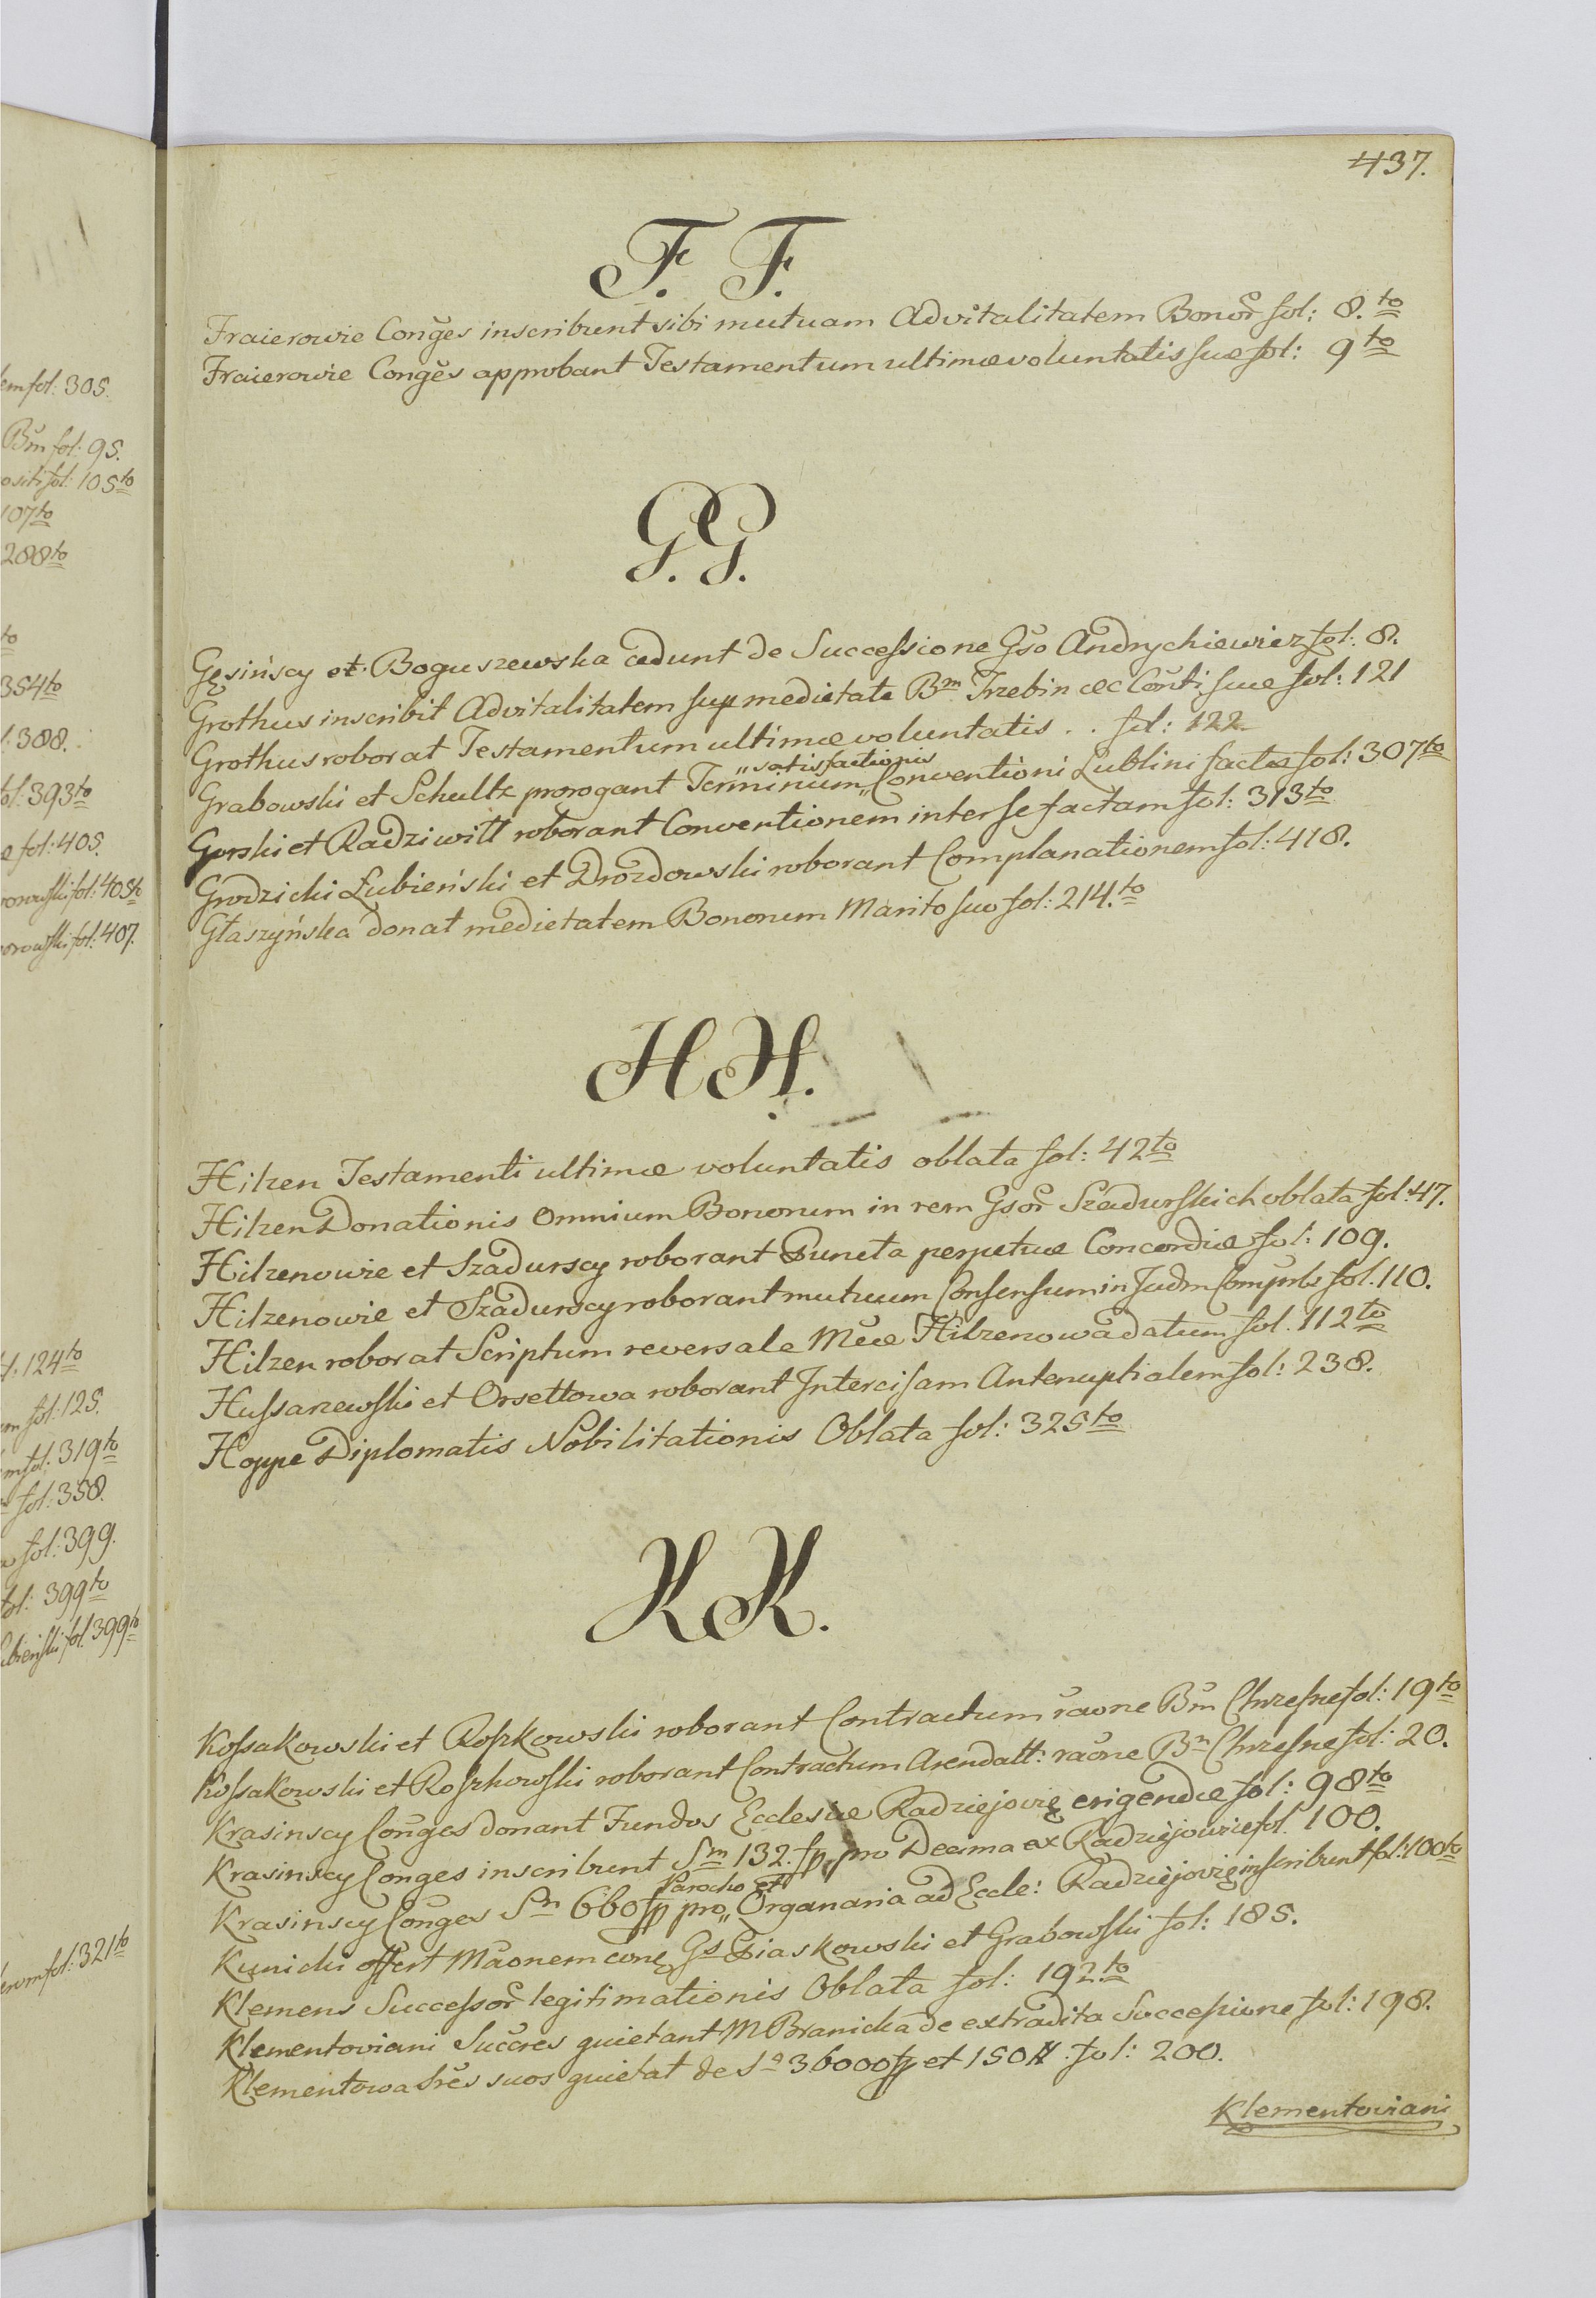 437.
F. F.
Fraierowie Conges inscribunt sibi mutuam Advitalitatem Bonor fol: 8.to
Fraierowie Conges approbant Testamentum ultimæ voluntatis suæ fol: 9to
G. G.
Gęsińscy et Boguszewska cedunt de Successione Gso Andrychiewicz fol: 8.
Grothus inscribit Advitalitatem sup medietate Bm Trzebin &c Conti suæ fol: 121
Grothus roborat Testamentum ultimæ voluntatis . . fol: 122.
Grabowski et Schultz prorogant Terminum „satisfactionis „Conventioni Lublini factæ fol: 307to
Gorski et Radziwiłł roborant Conventionem inter se factam fol: 313to
Grodzicki Łubieński et Drozdowski roborant Complanationem fol: 418.
Głaszyńska donat medietatem Bonorum Marito suo fol: 214.to
H H.
Hilzen Testamenti ultimæ voluntatis oblata fol: 42to
Hilzen Donationis Omnium Bonorum in rem Gsor Szadurskich oblata fol: 47.
Hilzenowie et Szadurscy roborant Puncta perpetuæ Concordiæ fol: 109.
Hilzenowie et Szadurscy roborant mutuum Consensum in Judm fol. 110.
Hilzen roborat Scriptum reversale Mcæ Hilzenowa datum fol. 112to
Hussarzewski et Orsettowa roborant Intercisam Antenuptialem fol: 238.
Hoppe Diplomatis Nobilitationis Oblata fol: 325to
K K.
Kossakowski et Roszkowski roborant Contractum raone Bm Chrzesne fol: 19to
Kossakowski et Roszkowski roborant Contractum Arendatt: raone Bm Chrzesne fol: 20.
Krasinscy Conges donant Fundos Ecclesiæ Radziejovię erigendæ fol: 98to
Krasinscy Conges inscribunt Sm 132. fp pro Decima ex Radziejowice fol. 100.
Krasinscy Conges Sm 660 fp pro „Parocho et Organaria ad Eccle: Radziejovię inscribunt fol: 100to
Kunicki offert Maonem conę Gs Piaskowski et Grabowski fol: 185.
Klemens Successor legitimationis Oblata fol: 192.to
Klementoviani Succres quietant M Branicka de extradita Successione fol: 198.
Klementowa fres suos quietat de Sa 36000 fp et 150 # fol: 200.
Klementoviani
em fol: 305.
Bm fol: 95.
ositi fol: 105to
107to
288to
to
354to
l: 388.
fol: 393to
e fol: 405.
fol: 405to
fol: 407.
l: 124to
m fol: 125.
m fol: 319to
fol: 358.
fol: 399.
fol: 399to
fol. 399to
fol: 321to